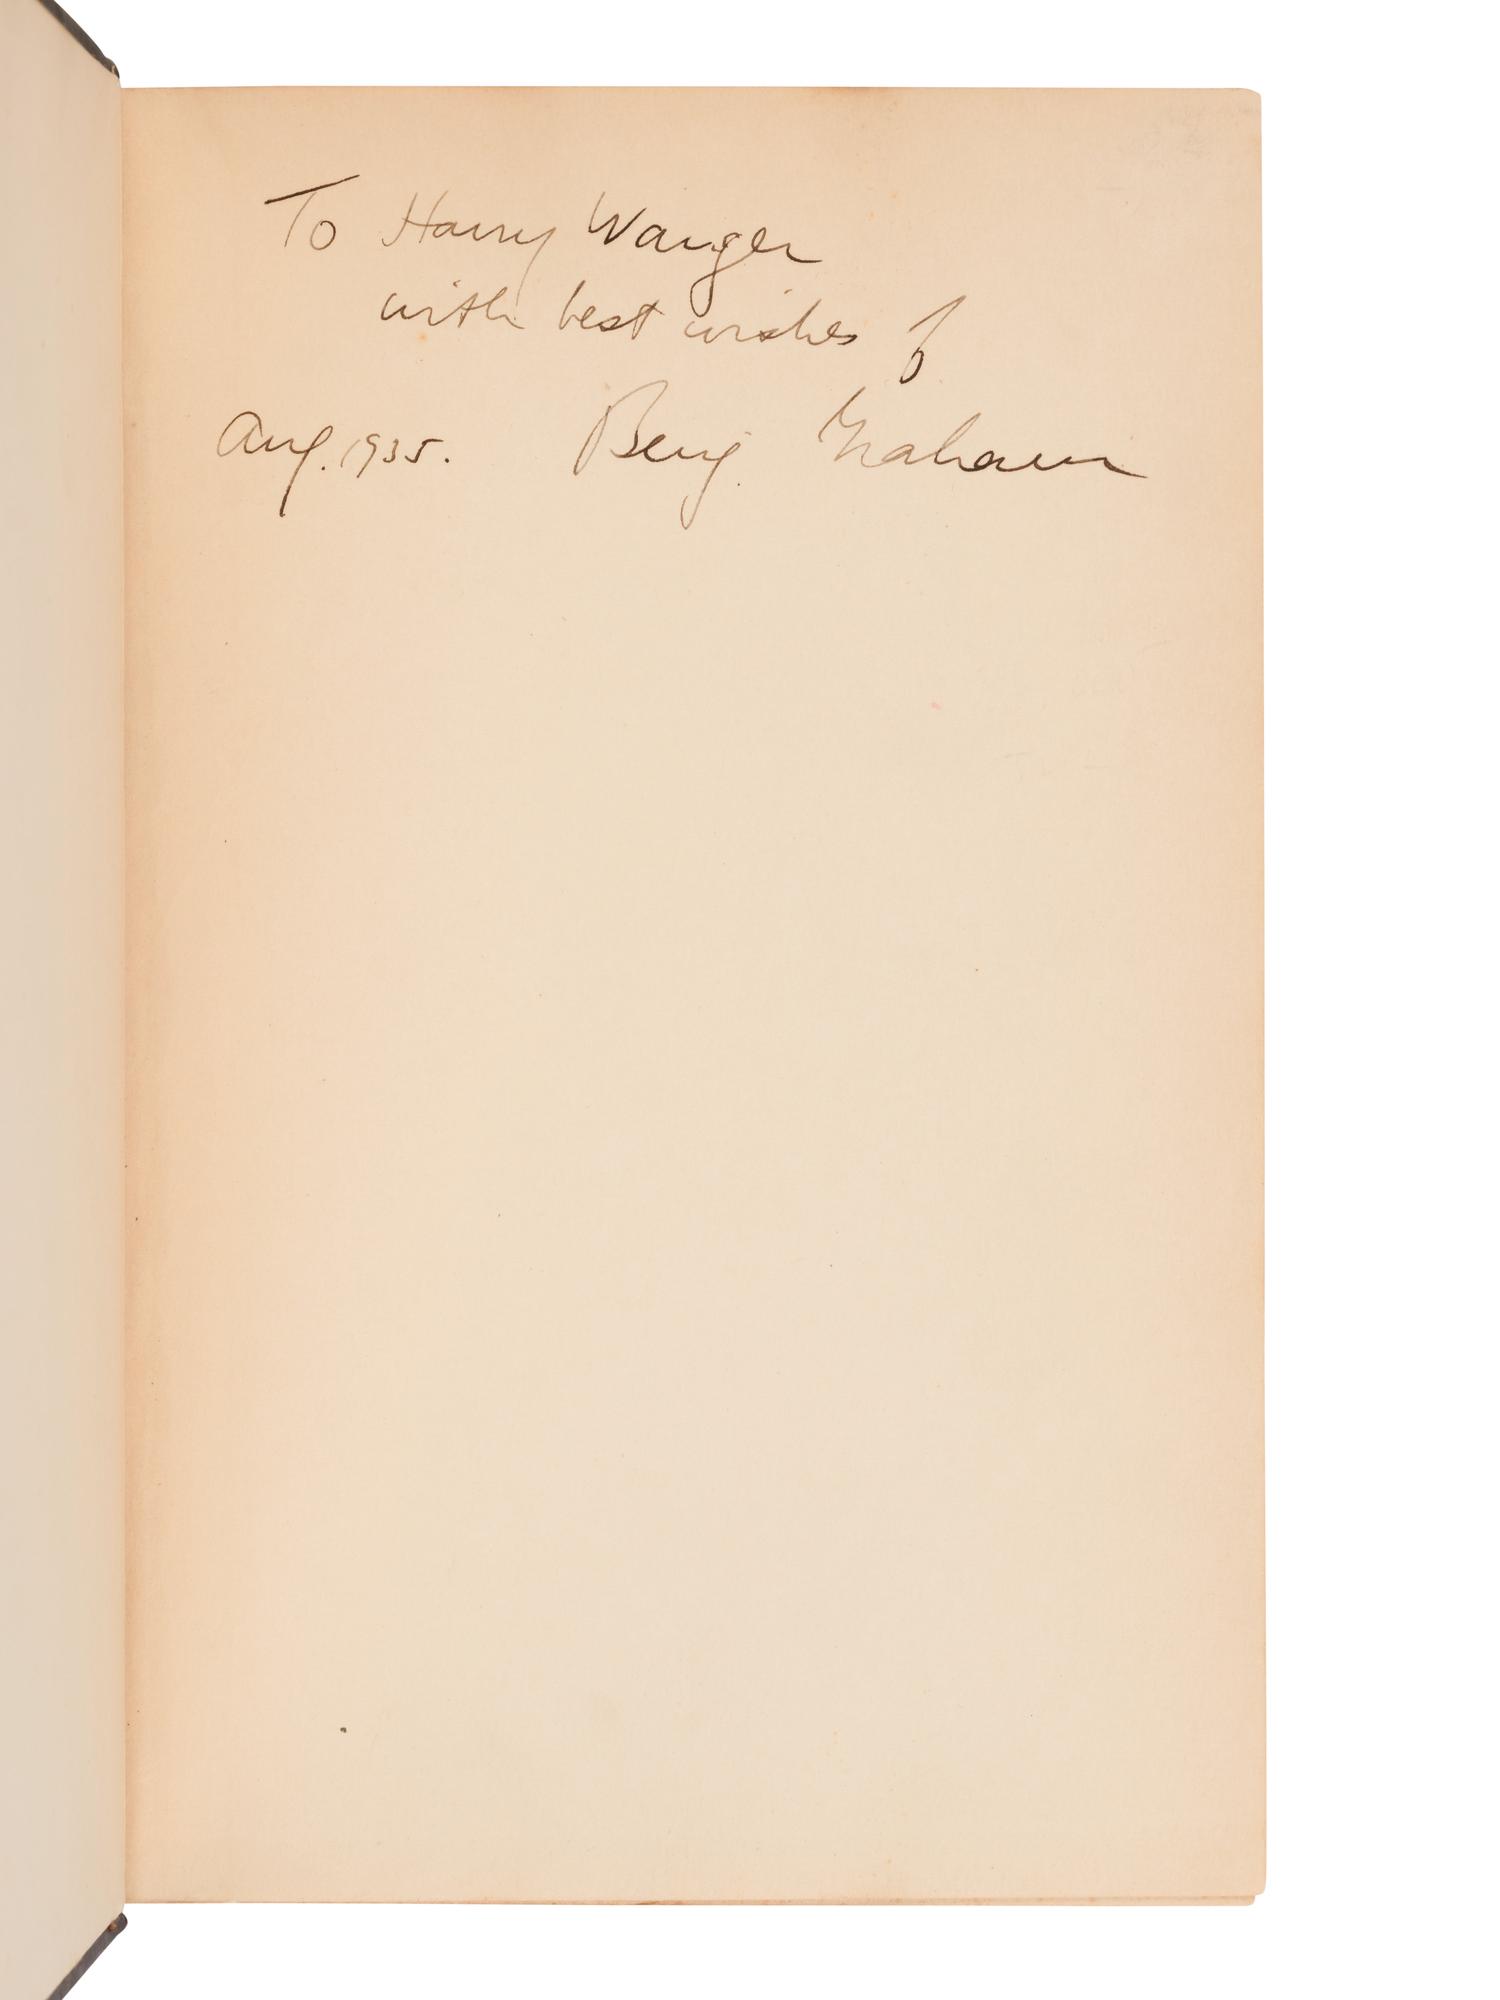 To Harry Wanger
with best wishes of
Aug. 1935. Benj. Graham